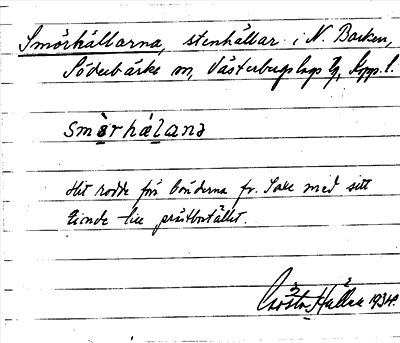 Smörhällarna, stenhällar i N. Barken,
Söderbärke sn, Västerbergslags tg, Kopp. l.
smèrhálanə
Hit rodde för bönderna fr. Saxe med sitt
tionde till prästbostället.
Gösta Hállen 1934.